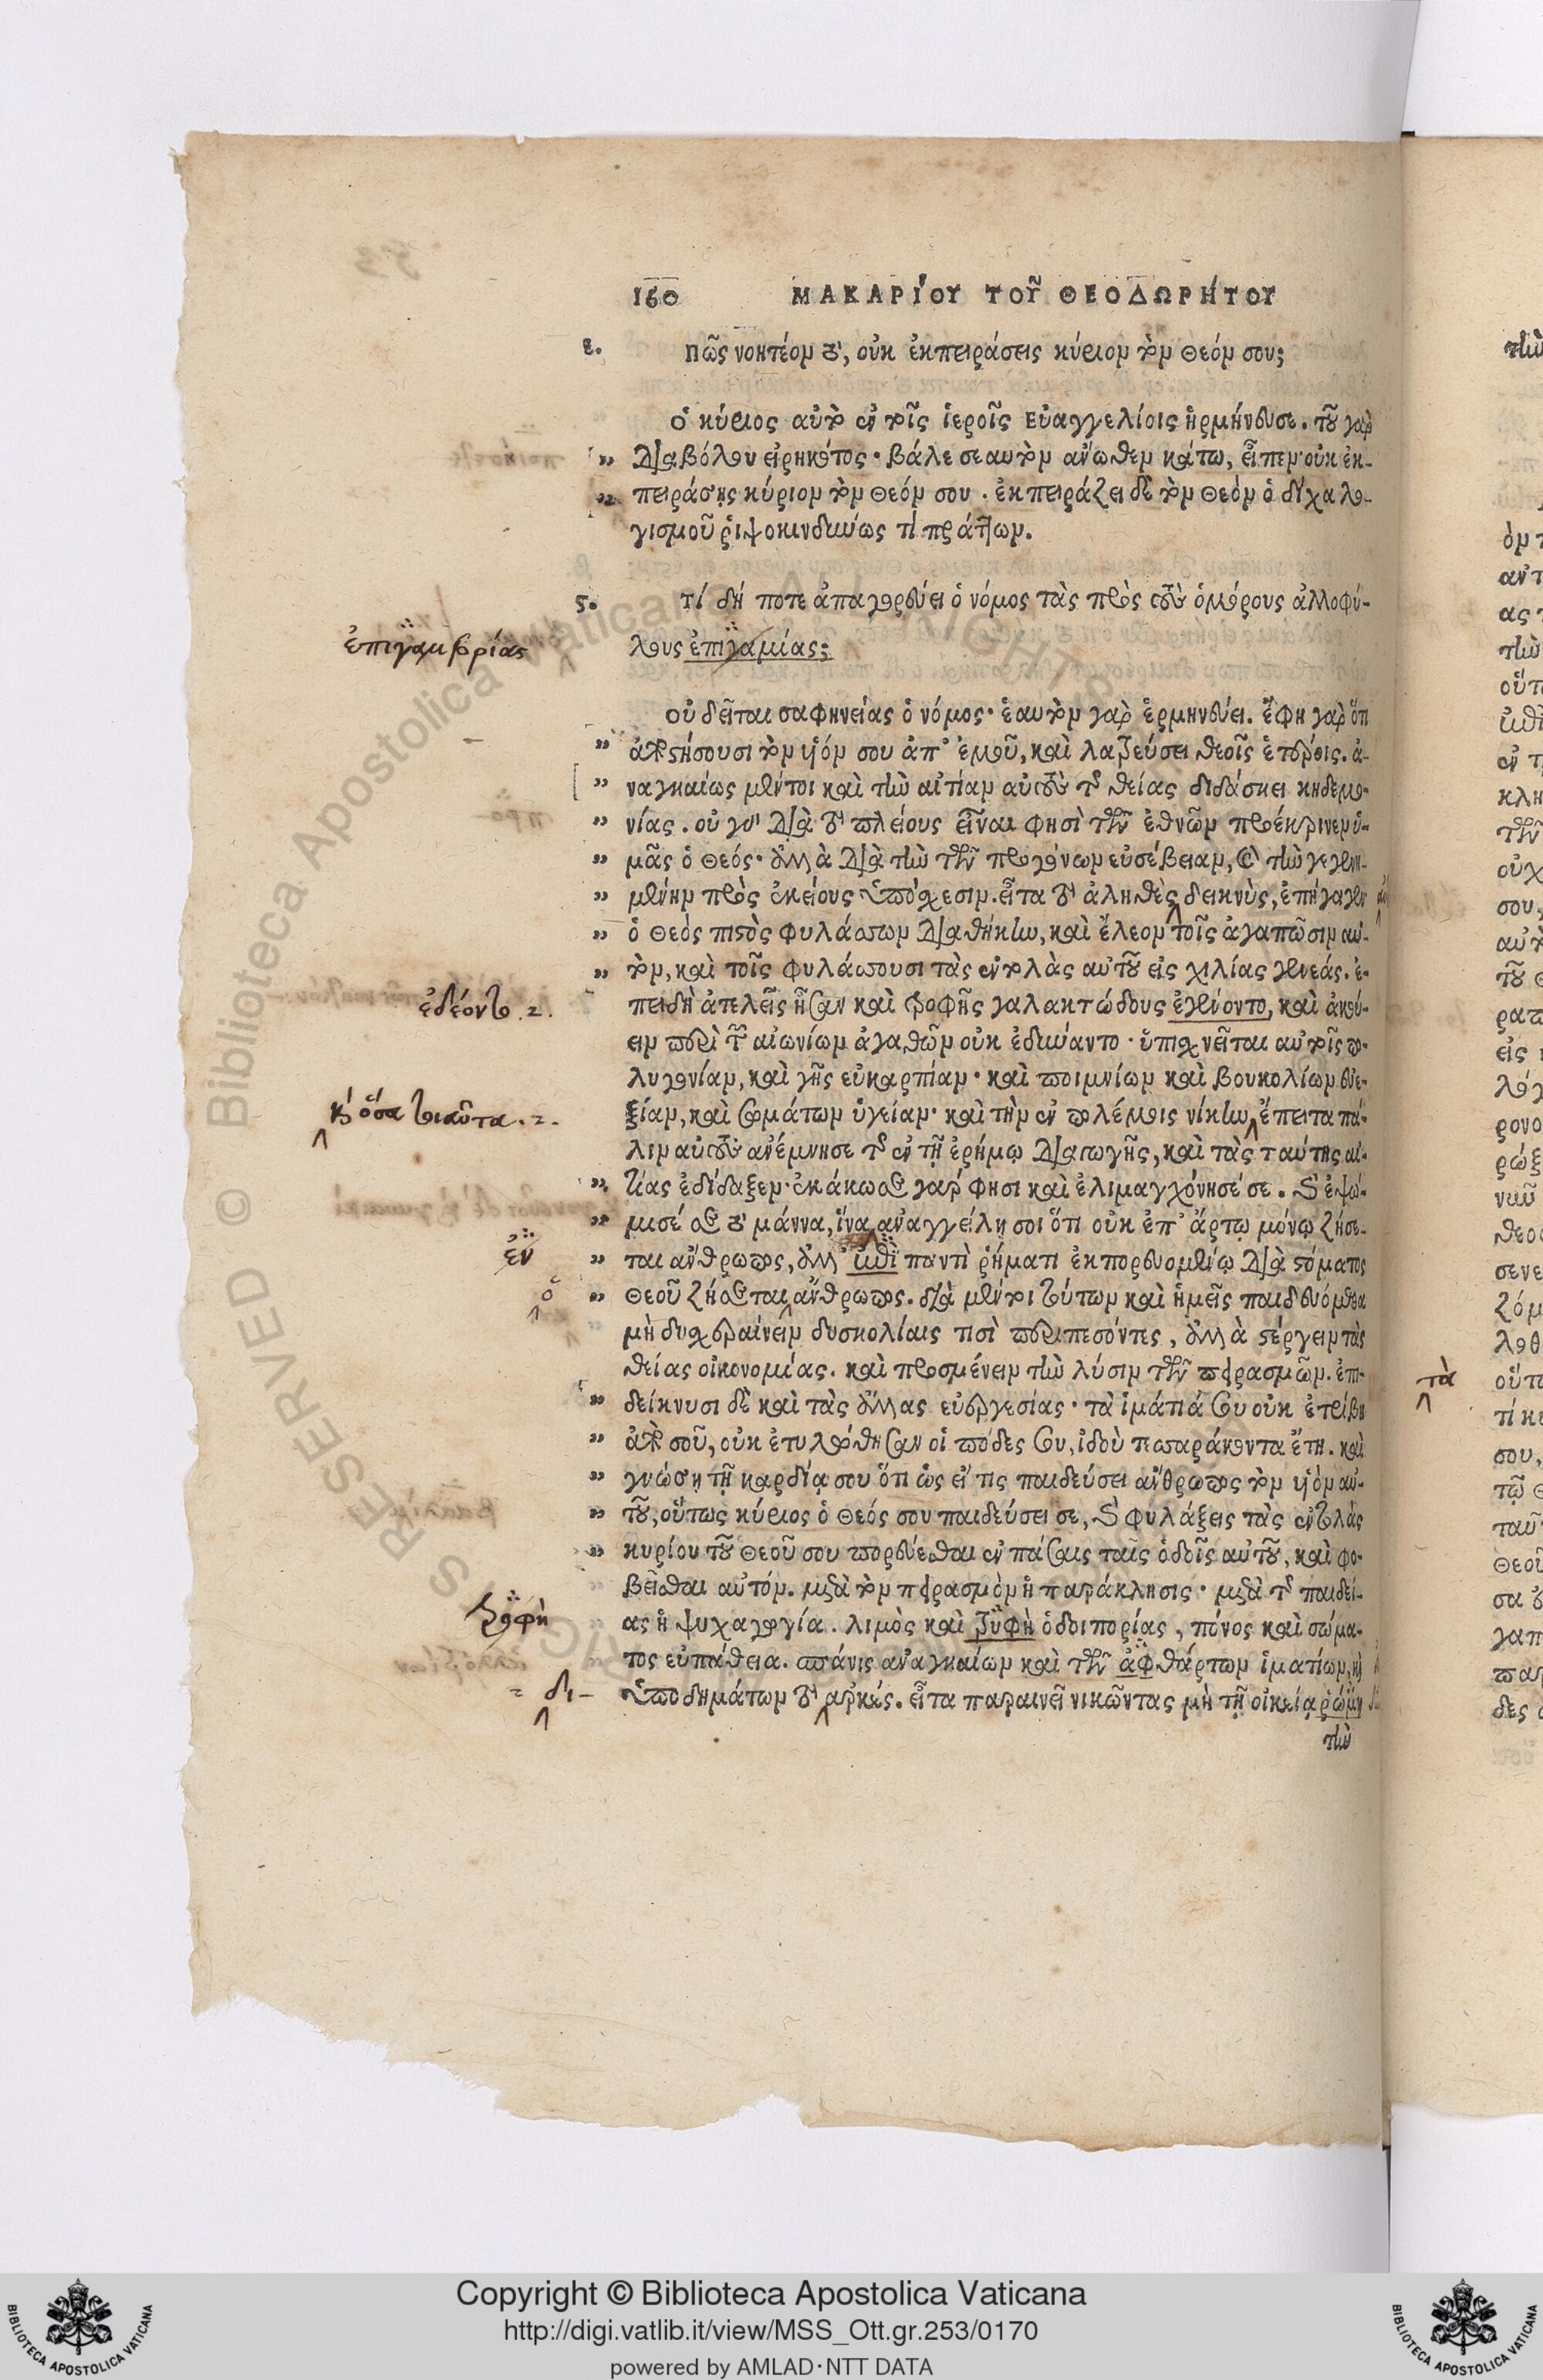 160 ΜΑΚΑΡΊΟΥ ΤΟΥ͂ ΘΕΟΔΩΡΉΤΟΥ
ε. πῶς νοητέομ τὸ, οὐκ ἐκπειράσεις κύριομ τὸμ θεόμ σου;
ὁ κύριος αὐτὸ ἐν τοῖς ἱεροῖς εὐαγγελίοις ἡρμήνευσε. τοῦ γὰρ
„ διαβόλου εἰρηκότος· βάλε σεαυτὸμ ἄνωθεμ κάτω, εἶπεμ· οὐκ ἐκ-
„ πειράσῃς κύριομ τὸμ θεόμ σου. ἐκπειράζει δὲ τὸμ θεὸμ ὁ δίχα λο-
γισμοῦ ῥιψοκινδύνως τὶ πράττωμ.
ς. τί δή ποτε ἀπαγορεύει ὁ νόμος τὰς πρὸς τοὺς ὁμόρους ἀλλοφύ-
ἐπιγαμβρίας λους ἐπιγαμίας;
οὐ δεῖται σαφηνείας ὁ νόμος· ἑαυτὸμ γὰρ ἑρμηνεύει. ἔφη γὰρ ὅτι
„ ἀποστήσουσι τὸμ υἱόμ σου ἀπ' ἐμοῦ, καὶ λατρεύσει θεοῖς ἑτέροις. ἀ-
„ ναγκαίως μέντοι καὶ τὴν αἰτίαμ αὐτοὺς τῆς θείας διδάσκει κηδεμο-
„ νίας. οὐ γὰρ διὰ τὸ πλείους εἶναι φησὶ τῶν ἐθνῶμ προέκρινεμ ὑ-
„ μᾶς ὁ θεός· ἀλλὰ διὰ τὴν τῶν προγόνωμ εὐσέβειαμ, καὶ τὴν γεγενη-
„ μένημ πρὸς ἐκείνους ὑπόσχεσιμ. εἶτα τὸ ἀληθὲς δεικνὺς, ἐπήγαγεν
„ ὁ θεὸς πιστὸς φυλάσσωμ διαθήκην, καὶ ἔλεομ τοῖς ἀγαπῶσιμ αὐ-
„ τὸμ, καὶ τοῖς φυλάσσουσι τὰς ἐντολὰς αὐτοῦ εἰς χιλίας γενεάς. ἐ-
ἐδέοντο. πειδὴ ἀτελεῖς ἦσαν καὶ τροφῆς γαλακτώδους ἐγεύοντο, καὶ ἀκού-
ειμ περὶ τῶν αἰωνίωμ ἀγαθῶμ οὐκ ἐδύναντο· ὑπισχνεῖται αὐτοῖς πο-
λυγονίαμ, καὶ γῆς εὐκαρπίαμ· καὶ ποιμνίωμ καὶ βουκολίωμ εὐε-
κὶ ὅσα τοιαῦτα. ξίαμ, καὶ σωμάτωμ ὑγείαμ· καὶ τὴμ ἐν πολέμοις νίκην, ἔπειτα πά-
λιμ αὐτοὺς ἀνέμνησε τῆς ἐν τῇ ἐρήμῳ διαγωγῆς, καὶ τὰς ταύτης αἰ-
„ τίας ἐδίδαξεμ· ἐκάκωσε γάρ φησι καὶ ἐλιμαγχόνησέ σε. καὶ ἐψώ-
„ μισέ σε τὸ μάννα, ἵνα ἀναγγείλῃ σοι ὅτι οὐκ ἐπ' ἄρτῳ μόνῳ ζήσε-
ἐν „ ται ἄνθρωπος, ἀλλ' ἐπὶ παντὶ ῥήματι ἐκπορευομένῳ διὰ στόματος
ὁ „ θεοῦ ζήσεται ἄνθρωπος. διὰ μέντοι τούτωμ καὶ ἡμεῖς παιδευόμεθα
μὴ δυσχεραίνειμ δυσκολίαις τισὶ περιπεσόντες, ἀλλὰ στέργειμ τὰς
θείας οἰκονομίας. καὶ προσμένειμ τὴν λύσιμ τῶν πειρασμῶμ. ἐπι-
„ δείκνυσι δὲ καὶ τὰς ἄλλας εὐεργεσίας· τὰ ἱμάτιά σου οὐκ ἐτρίβη
„ ἀπὸ σοῦ, οὐκ ἐτυλώθησαν οἱ πόδες σου, ἰδοὺ τεσσαράκοντα ἔτη. καὶ
„ γνώσῃ τῇ καρδίᾳ σου ὅτι ὡς εἴ τις παιδεύσει ἄνθρωπος τὸμ υἱὸμ αὐ-
„ τοῦ, οὕτως κύριος ὁ θεός σου παιδεύσει σε, καὶ φυλάξεις τὰς ἐντολὰς
„ κυρίου τοῦ θεοῦ σου πορεύεσθαι ἐν πάσαις ταῖς ὁδοῖς αὐτοῦ, καὶ φο-
βεῖσθαι αὐτόμ. μετὰ τὸμ πειρασμὸμ ἡ παράκλησις· μετὰ τῆς παιδεί-
τροφὴ ας ἡ ψυχαγωγία. λιμὸς καὶ τρυφὴ ὁδοιπορίας, πόνος καὶ σώμα-
τος εὐπάθεια. σπάνις ἀναγκαίωμ καὶ τῶν ἀφθάρτωμ ἱματίωμ, κὶ
δι- ὑποδημάτωμ τὸ ἀρκές. εἶτα παραινεῖ νικῶντας μὴ τῇ οἰκείᾳ ῥώμῃ
τὴν
τὰ
Copyright © Biblioteca Apostolica Vaticana
http://digi.vatlib.it/view/MSS_Ott.gr.253/0170
powered by AMLAD·NTT DATA
BIBLIOTECA APOSTOLICA VATICANA
BIBLIOTECA APOSTOLICA VATICANA